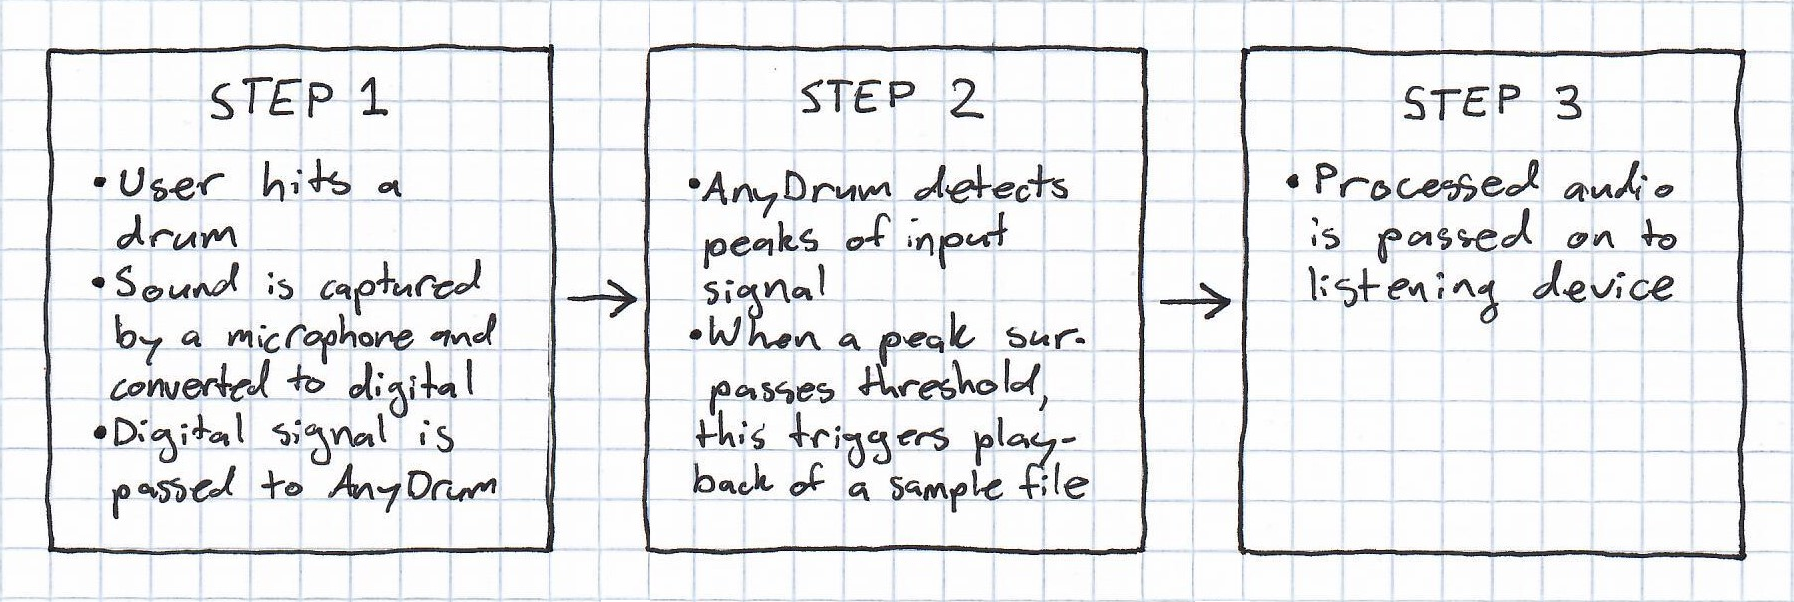 STEP 1
•User hits a
drum
•Sound is captured
by a microphone and
converted to digital
•Digital signal is
passed to AnyDrum
STEP 2
•AnyDrum detects
peaks of input
signal
•When a peak sur-
passes threshold,
this triggers play-
back of a sample file
STEP 3
•Processed audio
is passed on to
listening device